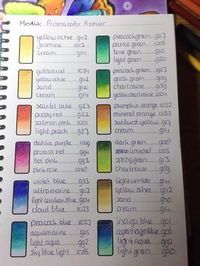 Media: Prismacolor Premier
yellow ochre 942
jasmine 1012
cream 914
goldenrod 1034
yellow ochre 942
sand 940
cream 914
scarlet lake 923
poppy red 922
salmon pink 1001
light peach 927
dahlia purple 1009
process red 994
hot pink 993
pink rose 1018
violet blue 933
ultramarine 902
light cerulean blue 904
cloud blue 1023
peacock blue 1027
aquamarine 905
light aqua 992
sky blue light 1086
peacock green 907
parrot green 1006
true green 910
light green 920
peacock green 907
grass green 909
chartreuse 989
yellow chartreuse 1004
pumpkin orange 1032
mineral orange 1033
sunburst yellow 917
cream 914
dark green 908
apple green 912
spring green 913
chartreuse 989
light umber 941
yellow ochre 942
sand 940
cream 914
indigo blue 901
copenhagen blue 906
light aqua 992
light green 920